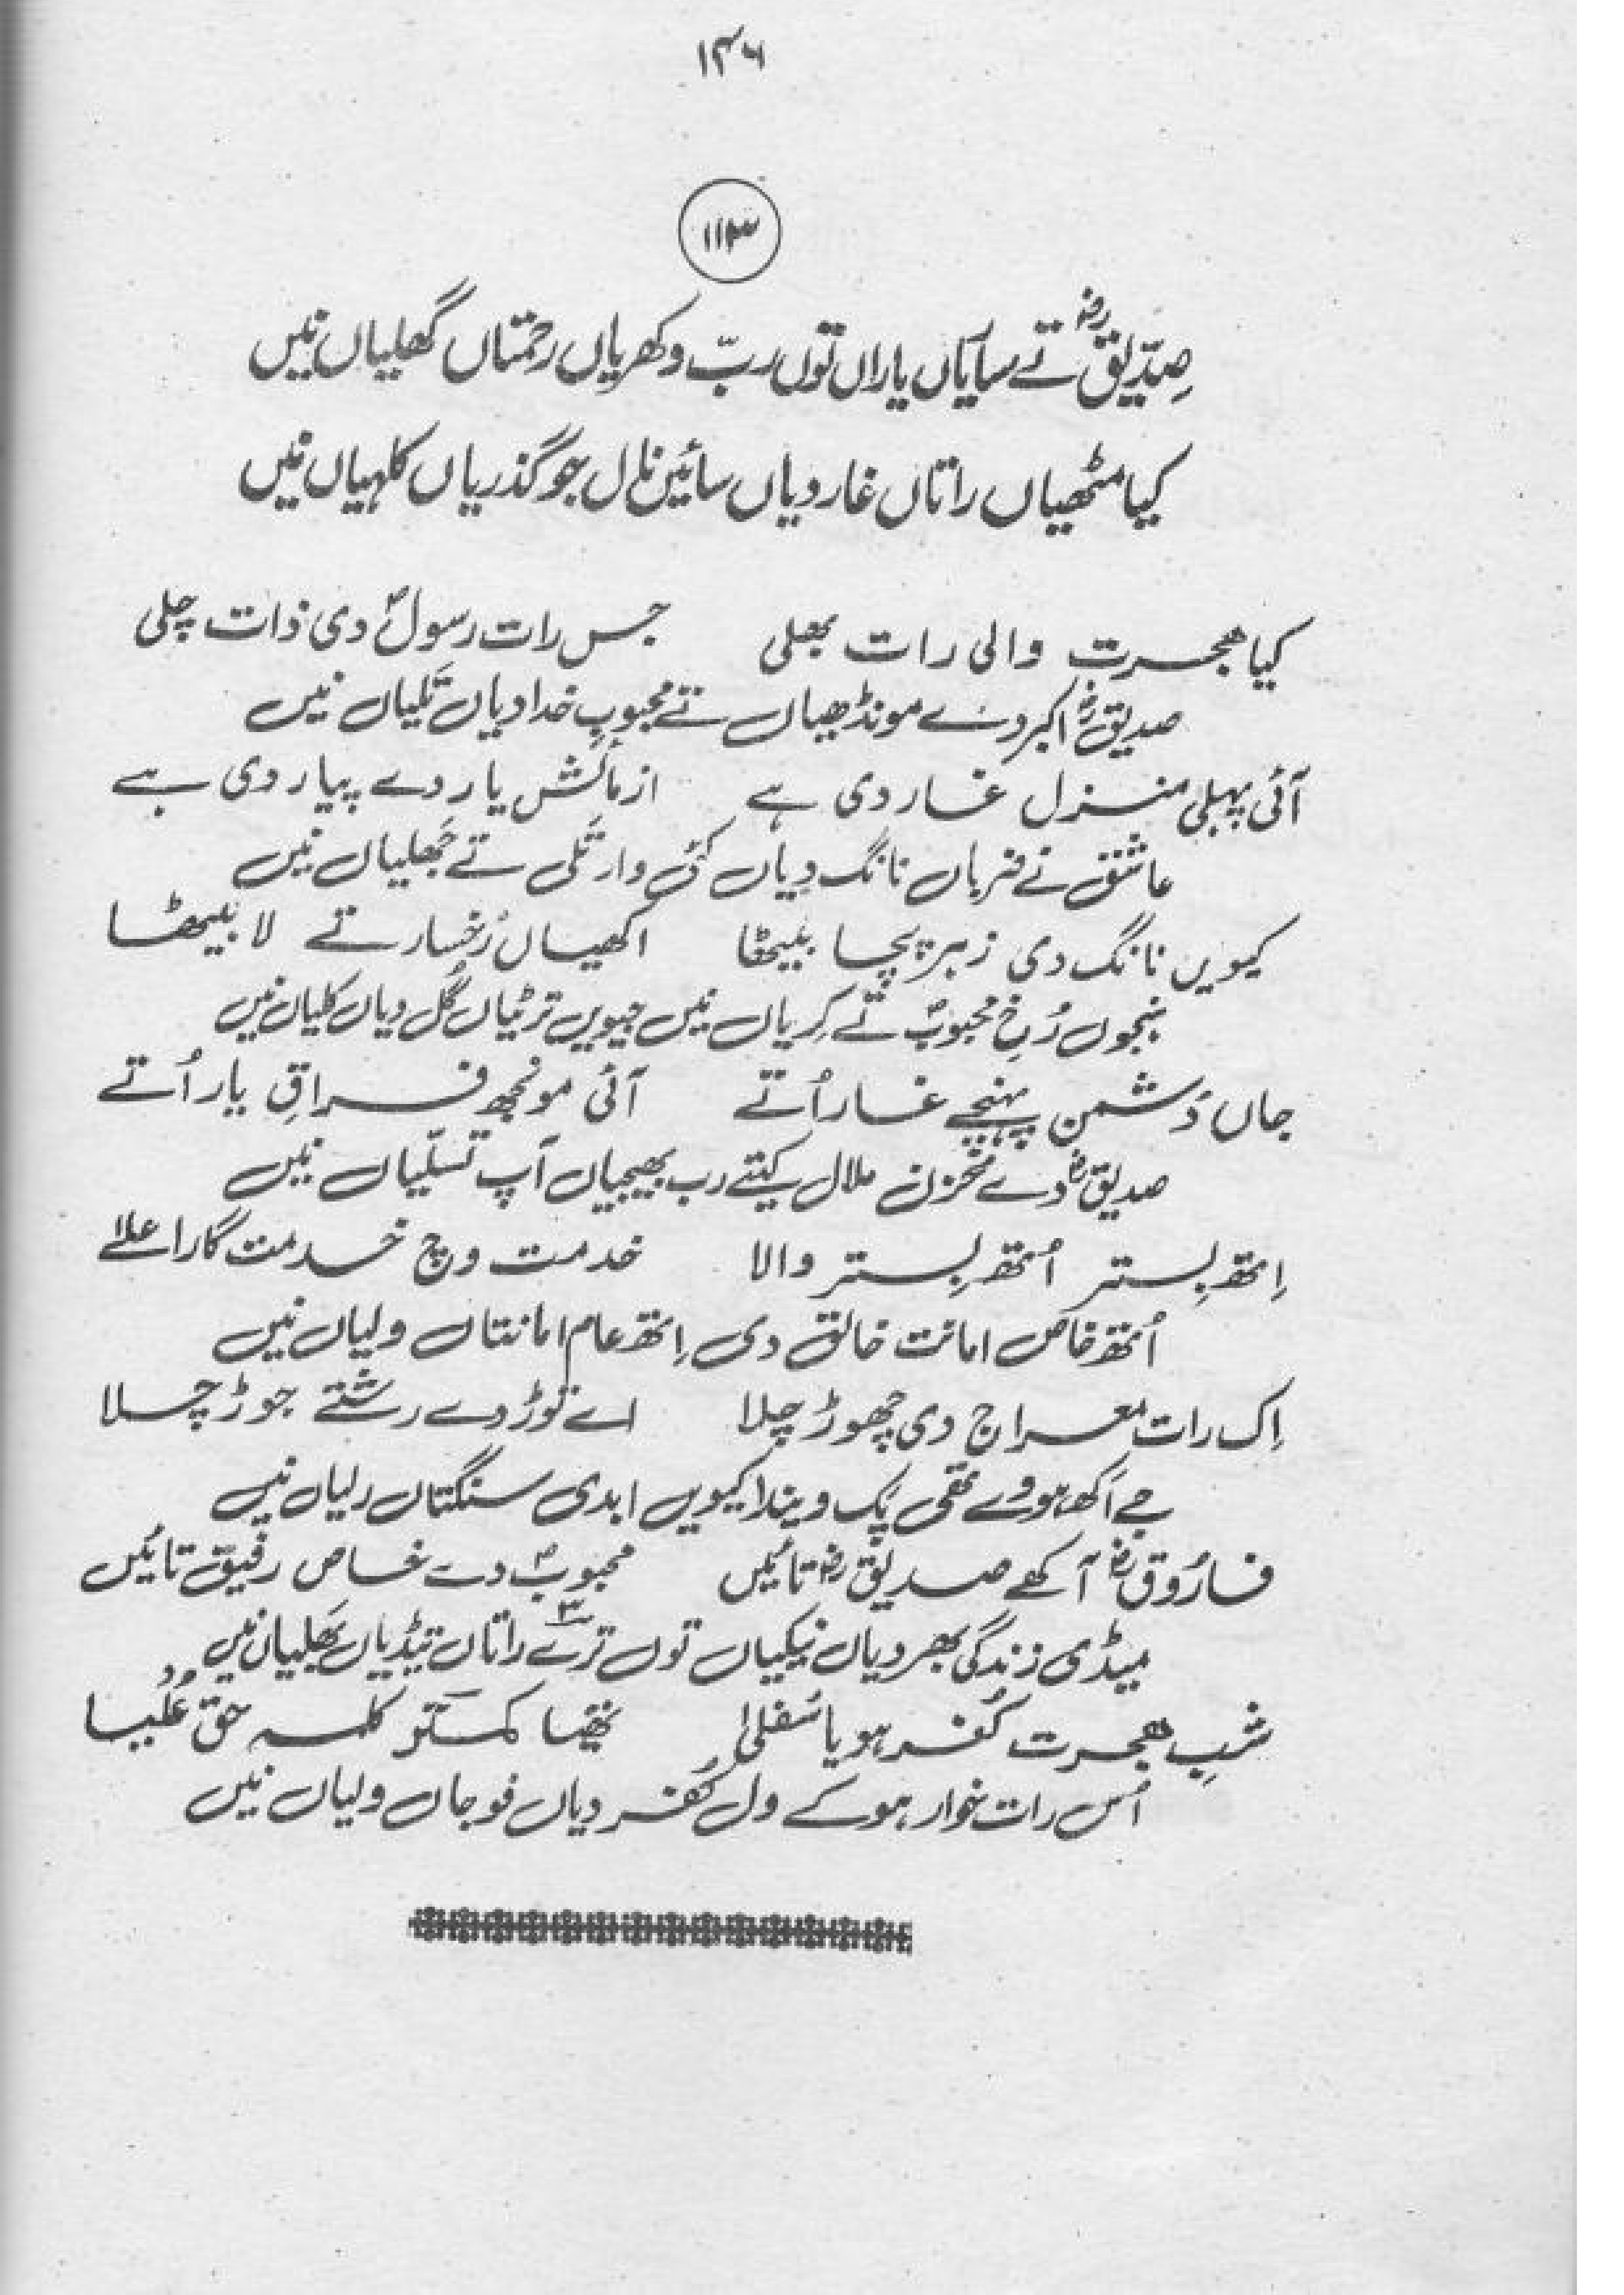 ۱۳۶
۱۱۳
صِدّیقؓ تے سایاں یاراں توں ربّ وکھریاں رحمتاں گھلیاں نیں
کیا مٹھیاں راتاں غار دیاں سائیں نال جو گذریاں کلہیاں نیں
کیا ھجرت والی رات بھلی جس رات رسولؐ دی ذات چلی
صدیقؓ اکبر دے مونڈھیاں تے محبوبِ خدا دیاں تَلیاں نیں
آئی پہلی منزل غار دی ہے ازمائش یار دے پیار دی ہے
عاشق نے ضرباں نانگ دیاں کئی وار تَلی تے جَھلیاں نیں
کیویں نانگ دی زہر پچا بیٹھا اکھیاں رُخسار تے لا بیٹھا
ہنجوں رُخِ محبوبؐ تے کِریاں نیں جیویں ترٹیاں گُل دیاں کلیاں نیں
جاں دَشمن پہنچے غار اُتے آئی مونجھ فراقِ یار اُتے
صدیقؓ دے مخزن ملال کیتے رب بھیجیاں آپ تسلّیاں نیں
اِتھ بِستر اُتھ بِستر والا خدمت وچ خدمت گار اعلےٰ
اُتھ خاص امانت خالق دی اِتھ عام امانتاں ولیاں نیں
اِک رات معراج دی چھوڑ چلا اے توڑ دے رشتے جوڑ چلا
جے اَکھ ہووے تھی پک ویندا کیویں ابدی سنگتاں رلیاں نیں
فارُوقؓ آکھے صدیقؓ تائیں محبوبؐ دے خاص رفیق تائیں
میڈی زندگی بھر دیاں نیکیاں توں ترے ۳ راتاں تیڈیاں بھلیاں نیں
شبِ ھجرت کُفر ہویا سُفلیٰ تھیا کلمہ حق عُلیا
اُس رات خوار ہو کے ول کُفر دیاں فوجاں ولیاں نیں